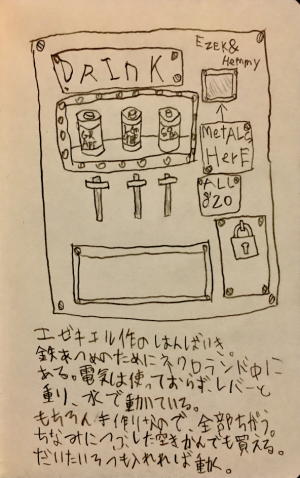 EZEK&
Hemmy
DRINK
GR
APE
METAL
HERE
ALL
20
エゼキエル作のはんばいき。
鉄あつめのためにネクロランド中に
ある。電気は使っておらず、レバーと
重り、水で動いている。
もちろん手作りなので、全部ちがう。
ちなみにつぶした空きかんでも買える。
だいたい3つも入れれば動く。